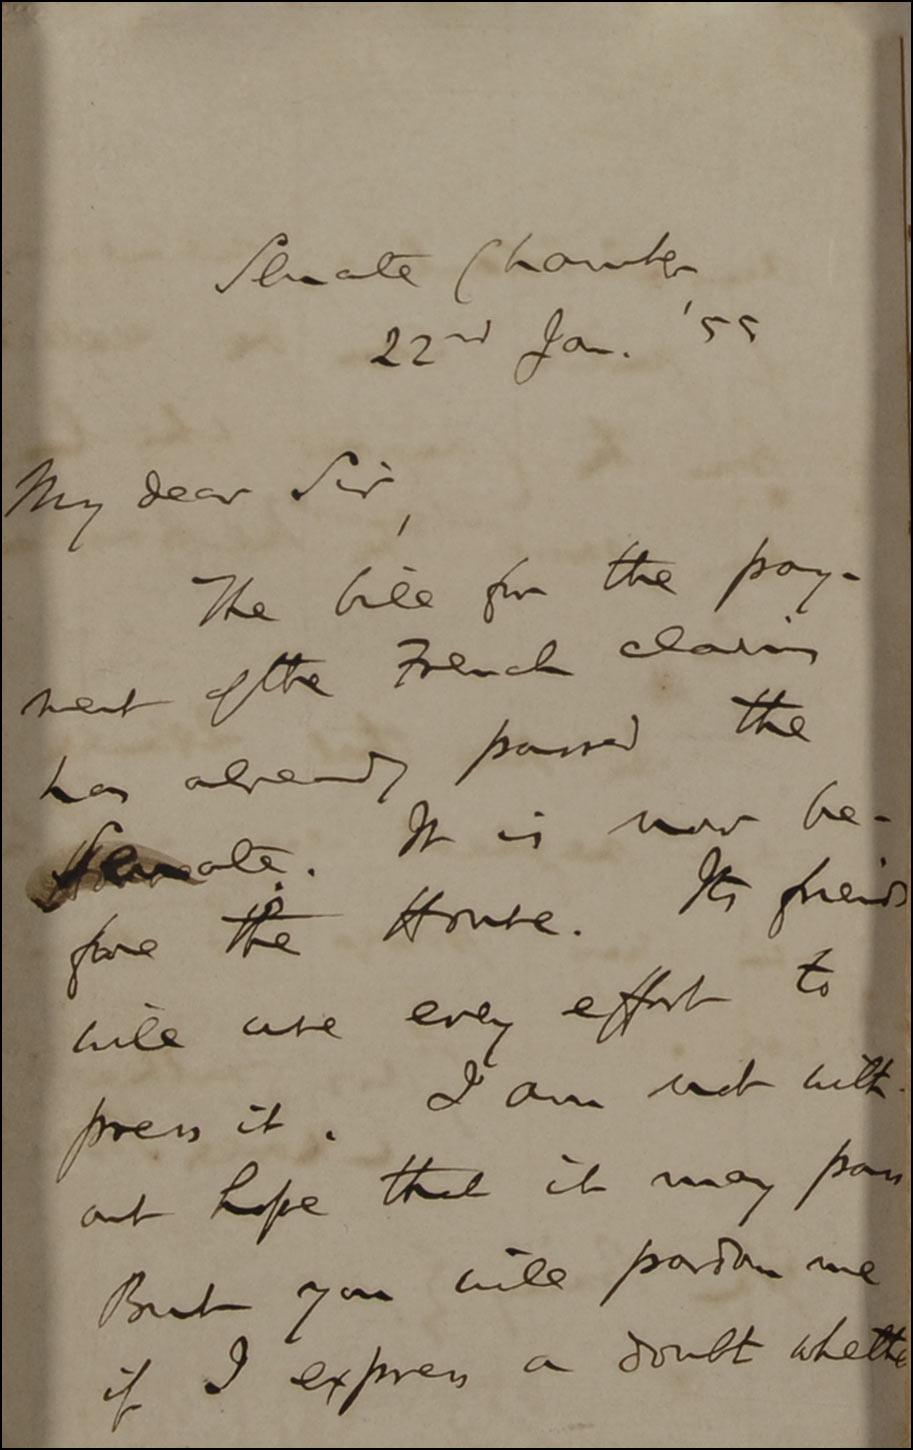 Senate Chamber
22nd Jan. '55
My dear Sir,
The bill for the pay-
ment of the French claims
has already passed the
Senate. It is now be-
fore the House. Its friends
will use every effort to
press it. I am not with-
out hope that it may pass
But you will pardon me
if I express a doubt whether